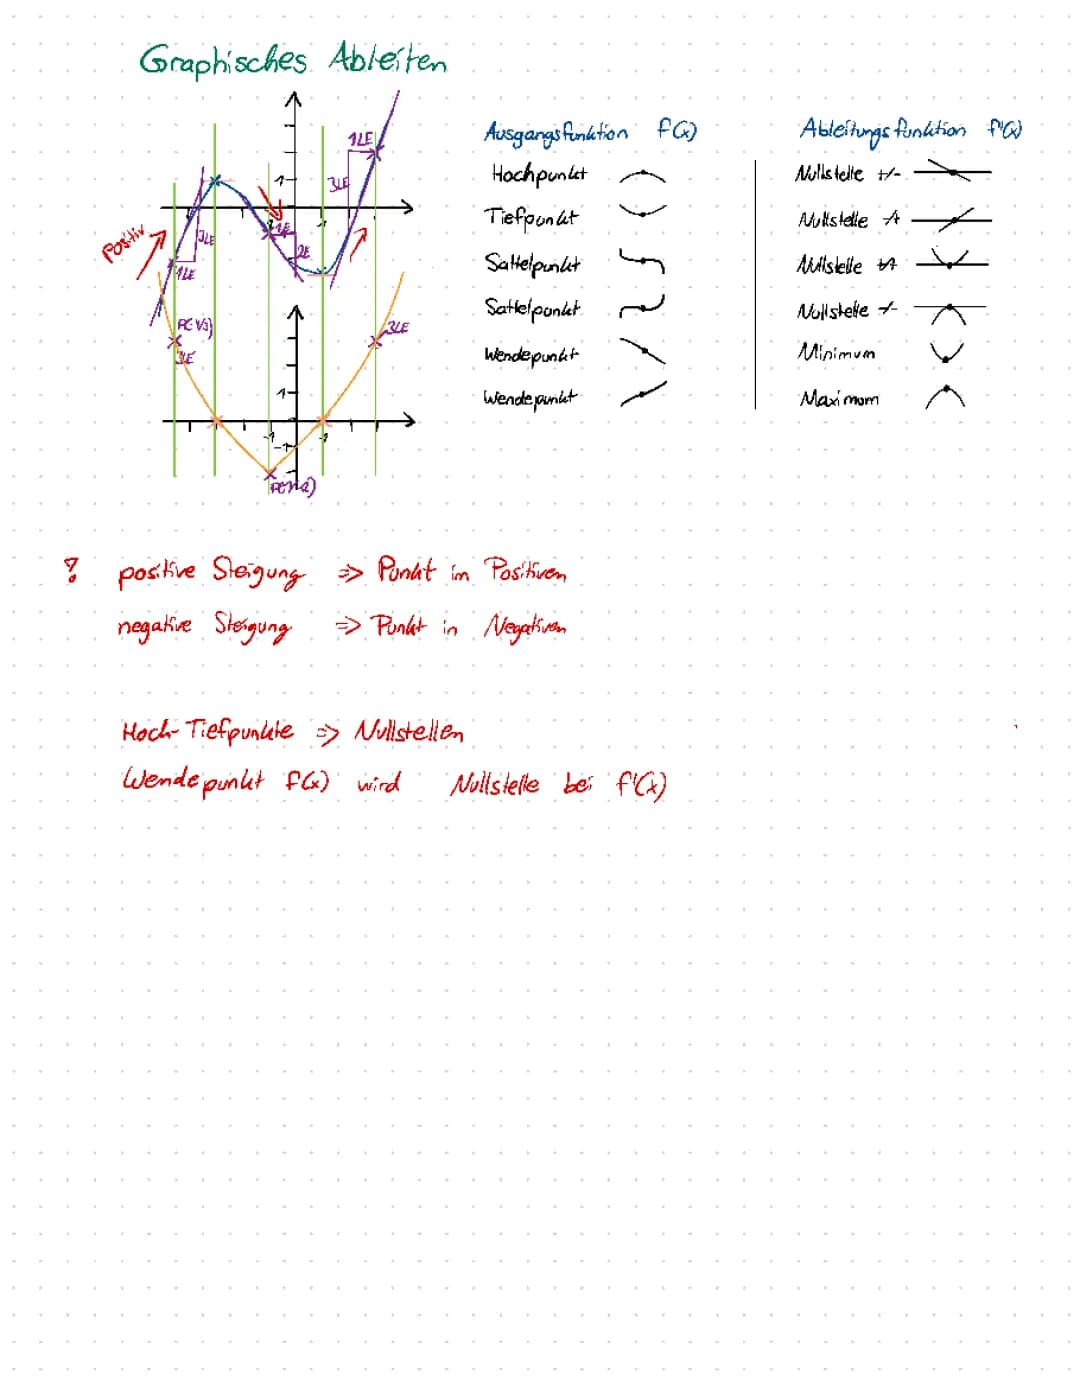 Graphisches Ableiten
Ausgangsfunktion f(x) Ableitungsfunktion f'(x)
Hochpunkt Nullstelle +/-
Tiefpunkt Nullstelle -/+
Sattelpunkt Nullstelle
Sattelpunkt Nullstelle -/-
Wendepunkt Minimum
Wendepunkt Maximum
1LE
1
3LE
Positiv
3LE
1LE
2LE
1LE
3LE
3LE
1
-1
1
-1
! positive Steigung => Punkt im Positiven
negative Steigung => Punkt in Negativen
Hoch- Tiefpunkte => Nullstellen
Wendepunkt f(x) wird Nullstelle bei f'(x)